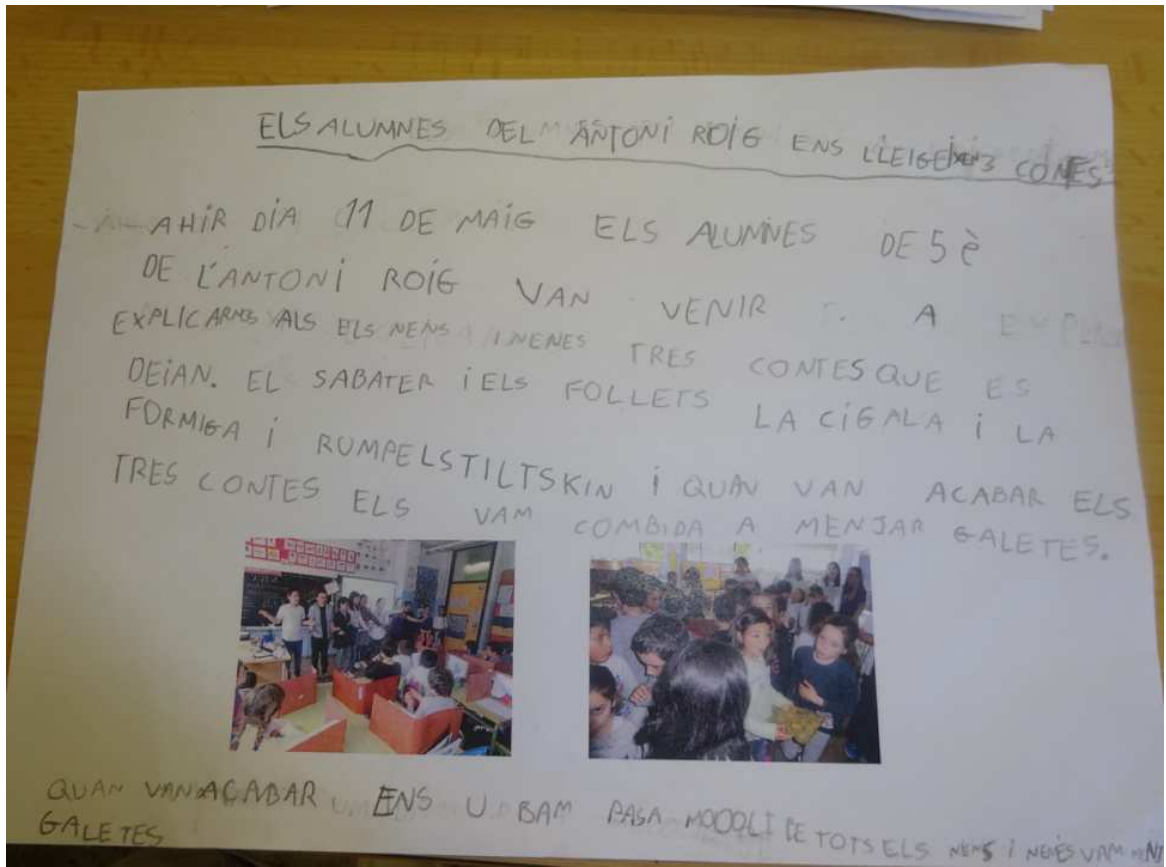 ELS ALUMNES DEL ANTONI ROIG ENS LLEIGEIXEN 3 CONTES
AHIR DIA 11 DE MAIG ELS ALUMNES DE 5 è
DE L'ANTONI ROIG VAN VENIR A
EXPLICARNOS ALS ELS NENS I NENES TRES CONTES QUE ES
DEIAN. EL SABATER I ELS FOLLETS LA CIGALA I LA
FORMIGA I RUMPELSTILTSKIN I QUAN VAN ACABAR ELS
TRES CONTES ELS VAM COMBIDA A MENJAR GALETES.
QUAN VAN ACABAR ENS U BAM PASA MOOOLT BE TOTS ELS NENS I NENES VAM
GALETES